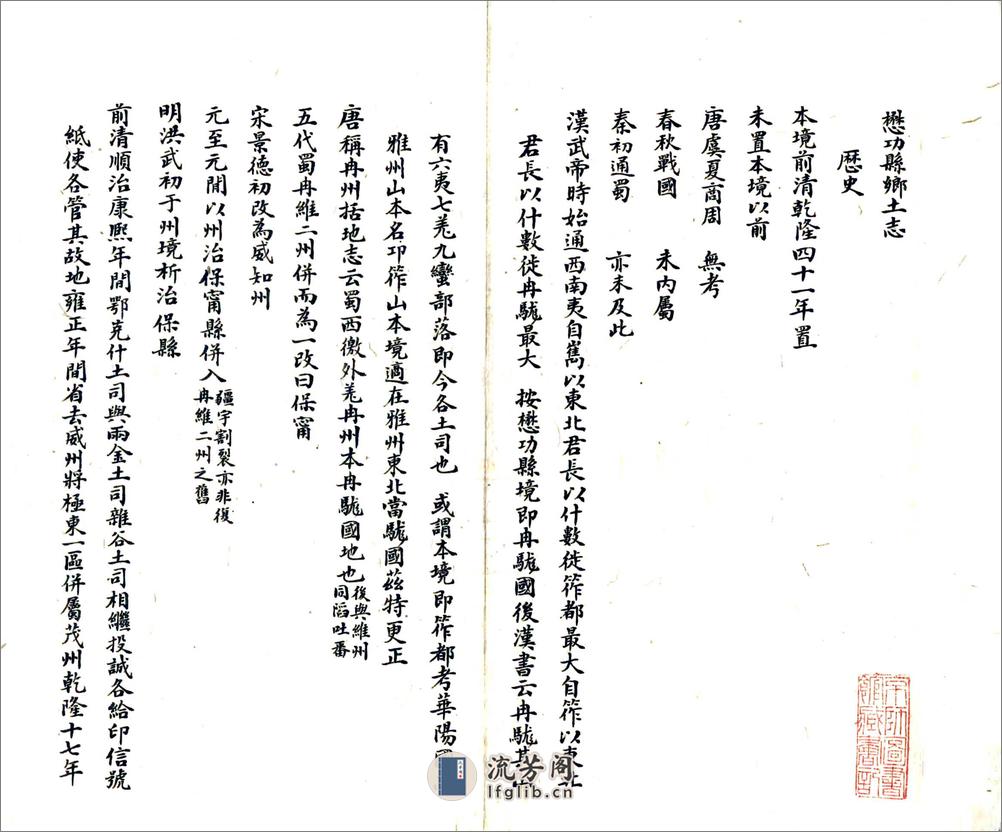 懋功縣鄉土志
歷史
本境前清乾隆四十一年置
未置本境以前
唐虞夏商周 無考
春秋戰國 未內屬
秦初通蜀 亦未及此
漢武帝時始通西南夷自嶲以東北君長以什數徙筰都最大自筰以東北
君長以什數徙冉駹最大 按懋功縣境即冉駹國後漢書云冉駹其
有六夷七羌九蠻部落即今各土司也 或謂本境即筰都考華陽
雅州山本名邛筰山本境適在雅州東北當駹國茲特更正
唐稱冉州括地志云蜀西徼外羌冉州本冉駹國地也後與維州同陷吐番
五代蜀冉維二州併而為一改曰保甯
宋景德初改為威知州
元至元間以州治保甯縣併入疆宇割裂亦非復冉維二州之舊
明洪武初于州境析治保縣
前清順治康熙年間鄂克什土司與兩金土司雜谷土司相繼投誠各給印信號
紙使各管其故地雍正年間省去威州將極東一區併屬茂州乾隆十七年
流芳阁
lfglib.cn